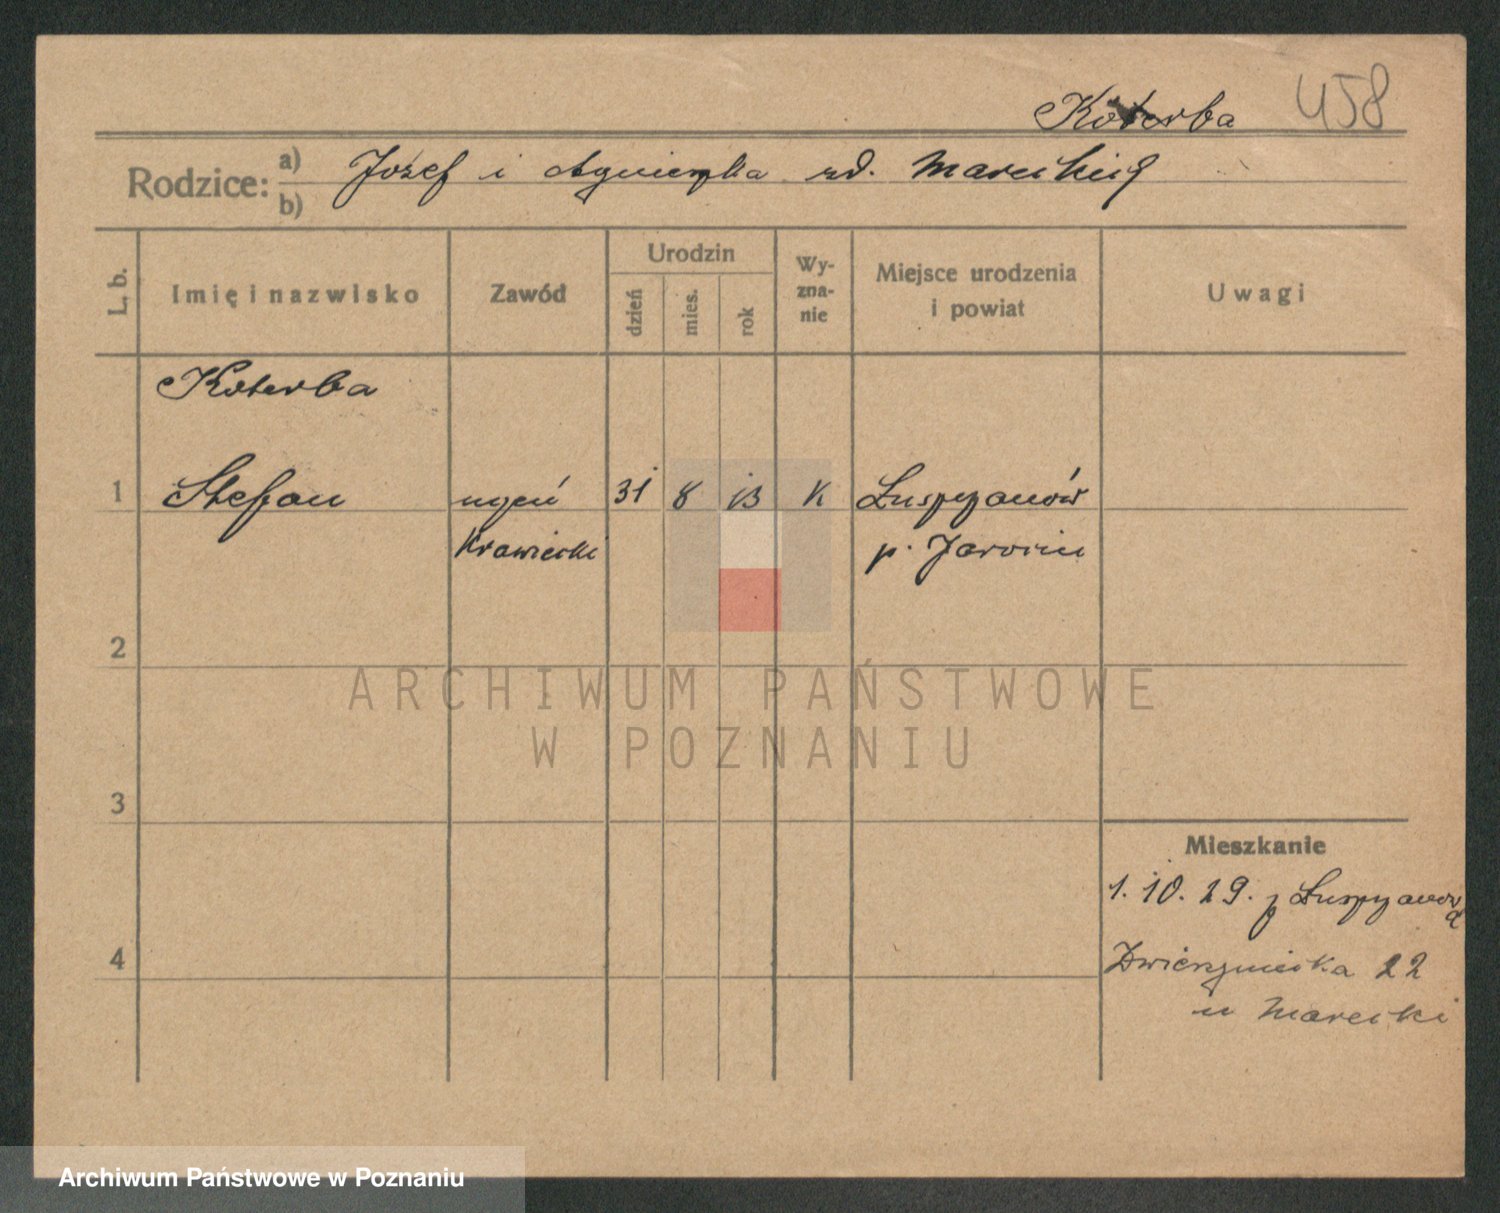 Koterba 458
Rodzice: a) Józef i Agnieszka zd.
b)
L. b.
Imię i nazwisko
Zawód
Urodzin
dzień
mies.
rok
Wy-
zna-
nie
Miejsce urodzenia
i powiat
Uwagi
Koterba
1 Stefan uczeń 31 8 13 K Luszczanów
Krawiecki p. Jarocin
2
3
4
Mieszkanie
1. 10. 29. z
22
u
ARCHIWUM PAŃSTWOWE
W POZNANIU
Archiwum Państwowe w Poznaniu